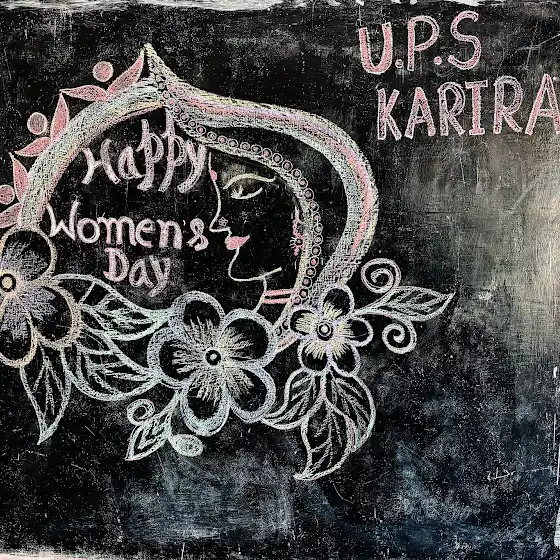 U.P.S
KARIRA
Happy
Women's
Day